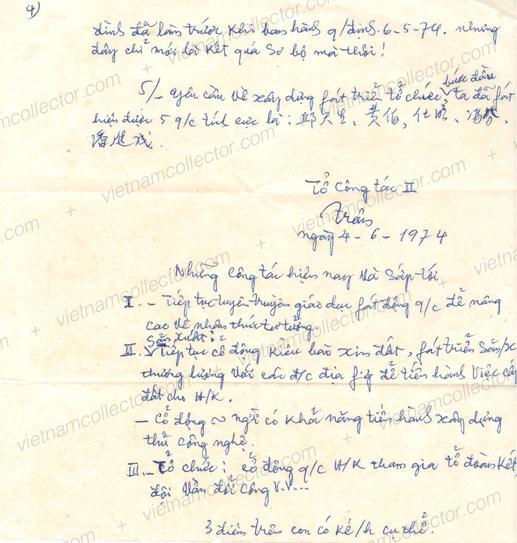 4)
định đã làm trước khi ban hành q/định 6-5-74. nhưng
đây chỉ mới là kết quả sơ bộ mà thôi!
5/- yêu cầu về xây dựng fát triển tổ chức, bước đầu ta đã fát
hiện được 5 q/c tích cực là: 邱天生、黄伯、仕
潘
Tổ công tác II
Trân
ngày 4-6-1974
Những công tác hiện nay và sắp tới
I. - Tiếp tục tuyên truyền giáo dục fát động q/c để nâng
cao về nhận thức tư tưởng.
II. Sản xuất: Tiếp tục cổ động Kiều bào xin đất, fát triển sản/x
thương lượng với các đ/c địa f. để tiến hành việc cấp
đất cho H/K.
- Cổ động ~ người có khả năng tiến hành xây dựng
thủ công nghệ.
III. - Tổ chức: cổ động q/c H/K tham gia tổ đoàn kết
đội vần đổi công v.v...
3 điểm trên còn có kế/h cụ thể.
vietnamcollector.com